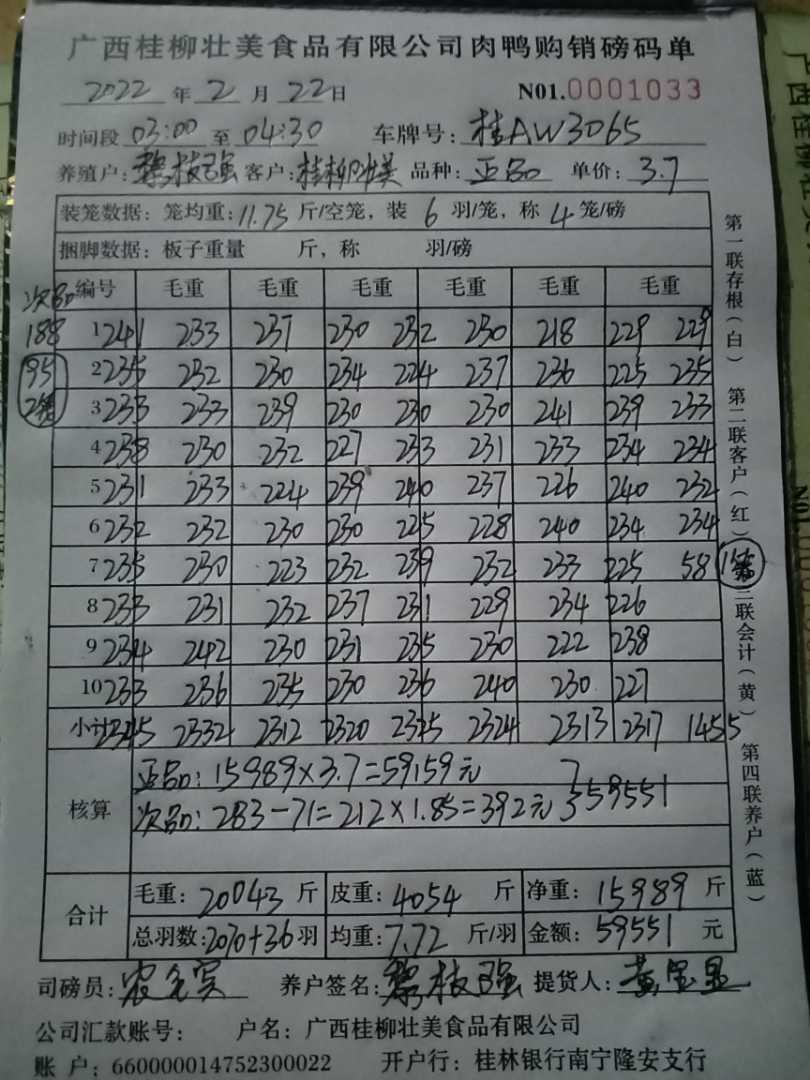 广西桂柳壮美食品有限公司肉鸭购销磅码单
2022 年 2 月 22 日 N01.0001033
时间段 03:00 至 04:30 车牌号：桂AW3065
养殖户：黎枝强 客户：桂柳壮美 品种：正品 单价：3.7
装笼数据：笼均重：11.75 斤/空笼，装 6 羽/笼，称 4 笼/磅
捆脚数据：板子重量 斤，称 羽/磅
次品 编号 毛重 毛重 毛重 毛重 毛重 毛重
188 1 241 233 237 230 232 230 218 229 229
95 2 235 232 230 234 224 237 236 225 235
2笼 3 233 233 239 230 230 230 241 239 233
4 238 230 232 227 233 231 233 234 234
5 231 233 224 239 240 237 226 240 232
6 232 232 230 230 225 228 240 234 234
7 235 230 223 232 239 232 233 225 58
8 233 231 232 237 231 229 234 226
9 234 242 230 231 235 230 222 238
10 233 236 235 230 236 240 230 227
小计 2345 2332 2312 2320 2325 2324 2313 2317 1455
核算
正品：15989×3.7=59159元
次品：283-71=212×1.85=392元 } 59551
合计
毛重：20043 斤 皮重：4054 斤 净重：15989 斤
总羽数：2070+36 羽 均重：7.72 斤/羽 金额：59551 元
司磅员： 养户签名：黎枝强 提货人：
公司汇款账号： 户名：广西桂柳壮美食品有限公司
账 户：660000014752300022 开户行：桂林银行南宁隆安支行
第一联存根（白） 第二联客户（红） 第三联会计（黄） 第四联养户（蓝）